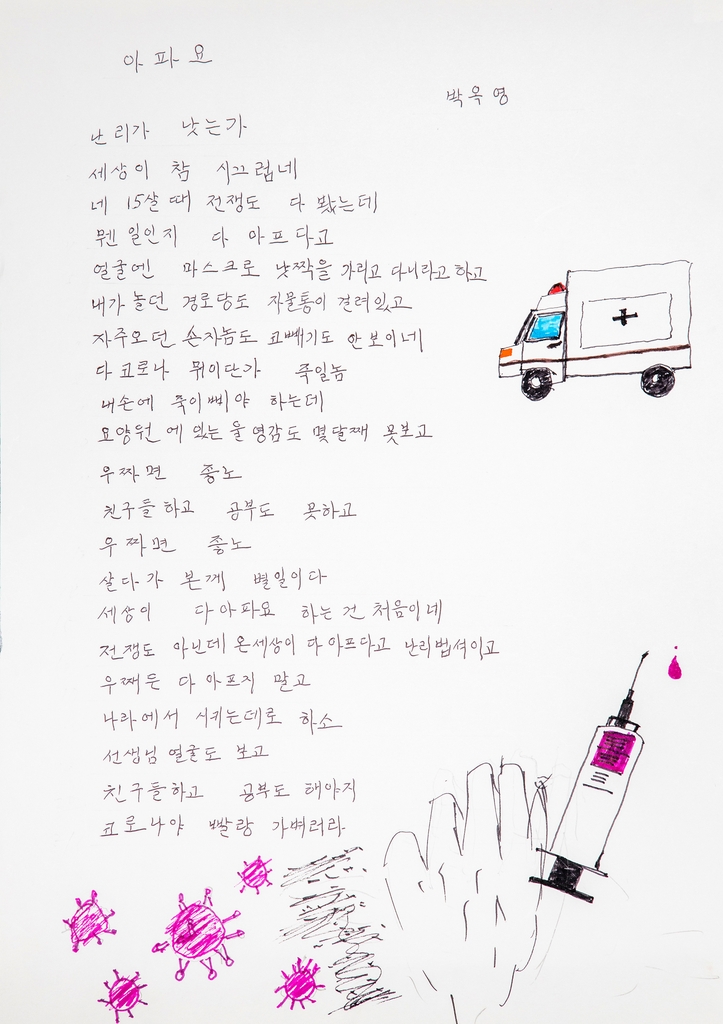 아파요
박옥영
난리가 낫는가
세상이 참 시끄럽네
네 15살 때 전쟁도 다 봤는데
뭔 일인지 다 아프다고
얼굴엔 마스크로 낯짝을 가리고 다니라고 하고
내가 놀던 경로당도 자물통이 결려있고
자주오던 손자놈도 코빼기도 안보이네
다 코로나 뭐이단가 죽일놈
내손에 죽이삐야 하는데
요양원에 있는 울 영감도 몇달째 못보고
우짜면 좋노
친구들하고 공부도 못하고
우짜면 좋노
살다가 본께 별일이다
세상이 다 아파요 하는 건 처음이네
전쟁도 아닌데 온세상이 다 아프다고 난리법석이고
우째든 다 아프지 말고
나라에서 시키는데로 하소
선생님 얼굴도 보고
친구들하고 공부도 해야지
코로나야 빨랑 가벼려라